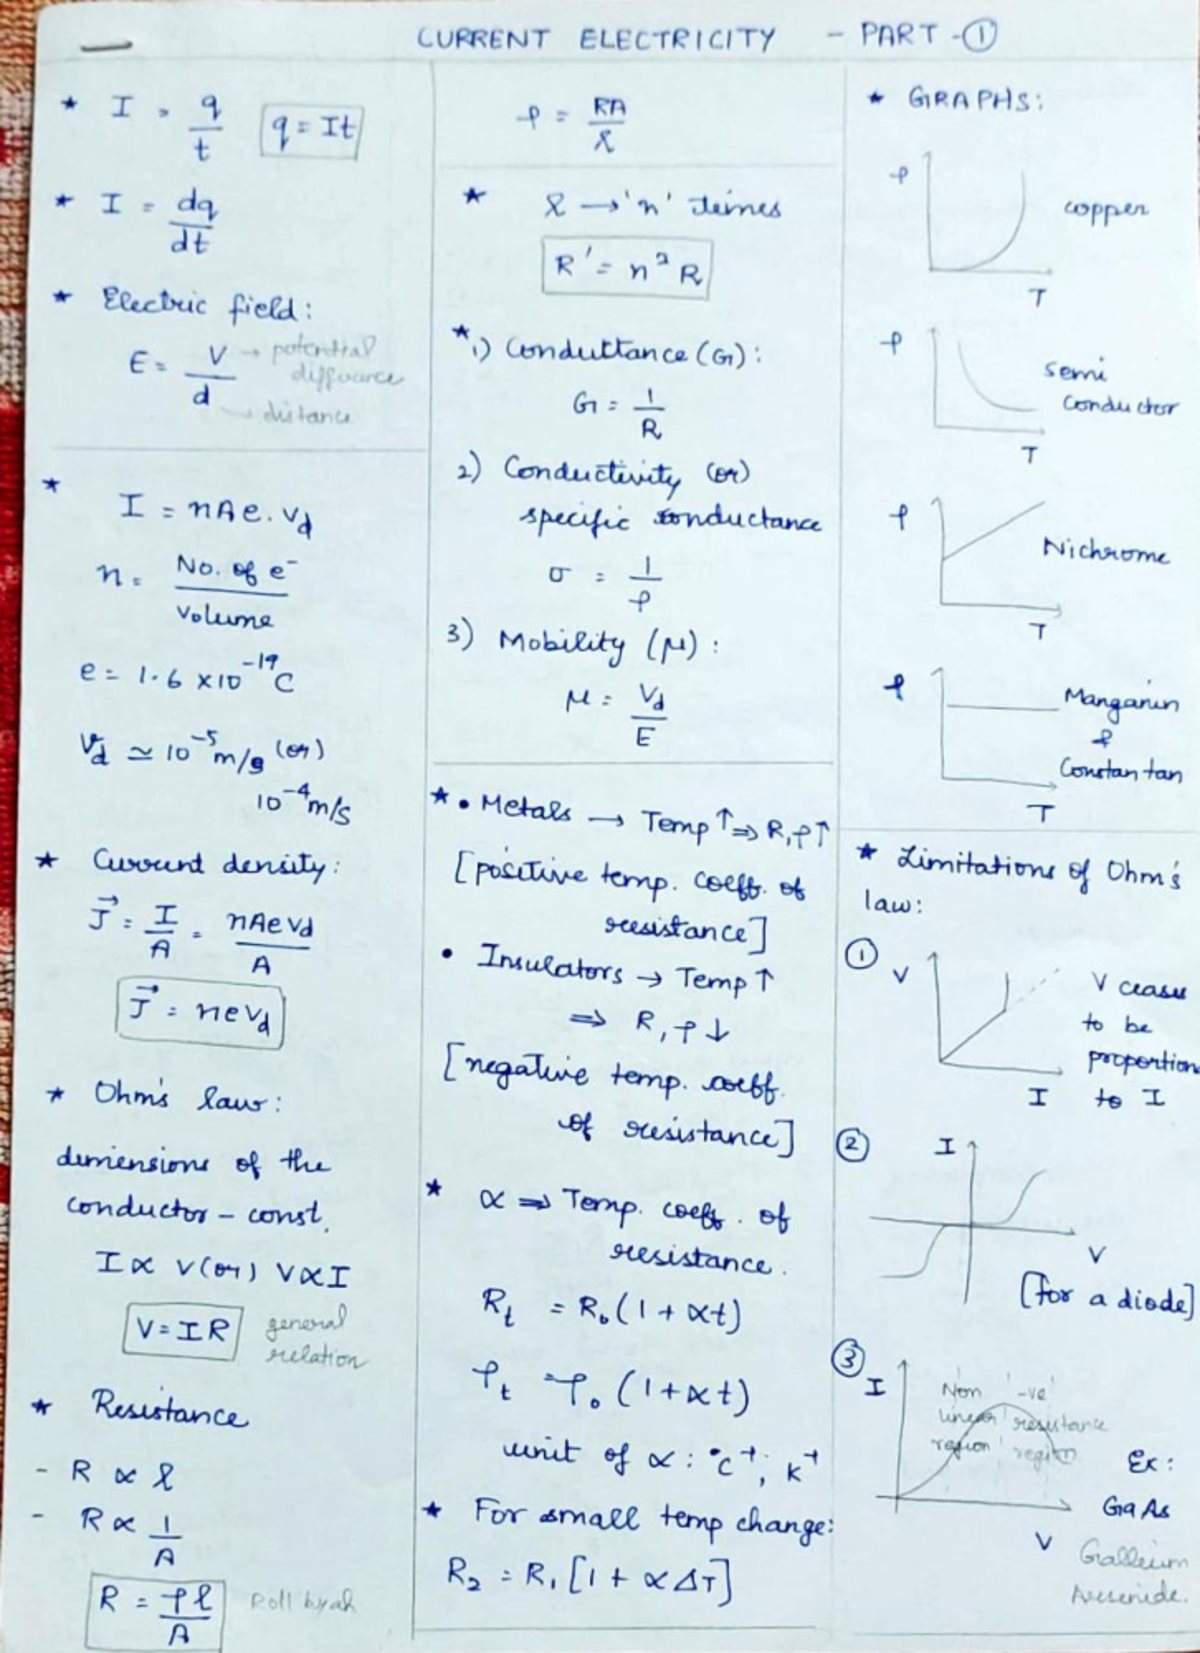 CURRENT ELECTRICITY - PART - ①
* I = q/t q = It
* I = dq/dt
* Electric field:
E = V/d → potential
diffurance
→ distance
*
I = nAe.Vd
n = No. of e⁻/volume
e = 1.6 x10⁻¹⁹C
Vd ≃ 10⁻⁵m/s (or)
10⁻⁴m/s
* Current density:
J⃗ = I/A = nAeVd/A
J⃗ = neVd
* Ohm's law:
dimensions of the
conductor - const.
I ∝ V (or) V ∝ I
V = IR general
relation
* Resistance
- R ∝ l
- R ∝ 1/A
R = ρl/A Roll by ah
ρ = RA/l
* l → 'n' times
R' = n²R
* 1) Conducttance (G):
G = 1/R
2) Conductivity (or)
specific conductance
σ = 1/ρ
3) Mobility (μ):
μ = Vd/E
* • Metals → Temp ↑ ⇒ R, ρ ↑
[positive temp. coeff. of
resistance]
• Insulators → Temp ↑
⇒ R, ρ ↓
[negative temp. coeff.
of resistance]
* α ⇒ Temp. coeff. of
resistance.
Rt = R₀(1 + αt)
ρt = ρ₀(1 + αt)
unit of α: °C⁻¹; K⁻¹
* For small temp change:
R₂ = R₁[1 + αΔT]
* GRAPHS:
ρ
copper
T
ρ
semi
conductor
T
ρ
Nichrome
T
ρ
Manganin
&
Constantan
T
* Limitations of Ohm's
law:
①
V
V ceases
to be
proportion
I to I
②
I
V
[for a diode]
③
I
Non -ve
linear resistance
region region
Ex:
GaAs
V
Gallium
Arsenide.